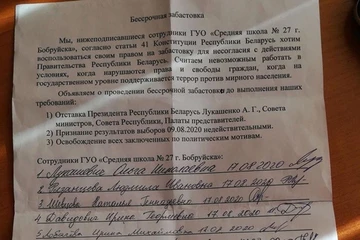 Бессрочная забастовка
Мы, нижеподписавшиеся сотрудники ГУО «Средняя школа № 27 г.
Бобруйска», согласно статьи 41 Конституции Республики Беларусь хотим
воспользоваться своим правом на забастовку для несогласия с действиями
Правительства Республики Беларусь. Считаем невозможным работать в
условиях, когда нарушаются права и свободы граждан, когда на
государственном уровне поддерживается террор против мирного населения.
Объявляем о проведении бессрочной забастовки до выполнения наших
требований:
1) Отставка Президента Республики Беларусь Лукашенко А. Г., Совета
министров, Совета Республики, Палаты представителей.
2) Признание результатов выборов 09.08.2020 недействительными.
3) Освобождение всех заключенных по политическим мотивам.
Сотрудники ГУО «Средняя школа № 27 г. Бобруйска»:
1. Ольга Николаевна 17.08.2020
2. Людмила Ивановна 17.08.2020
3. Наталья Геннадьевна 17.08.2020
4. Давидович Ирина Георгиевна 17.08.2020
5. Ирина Михайловна 17.08.2020